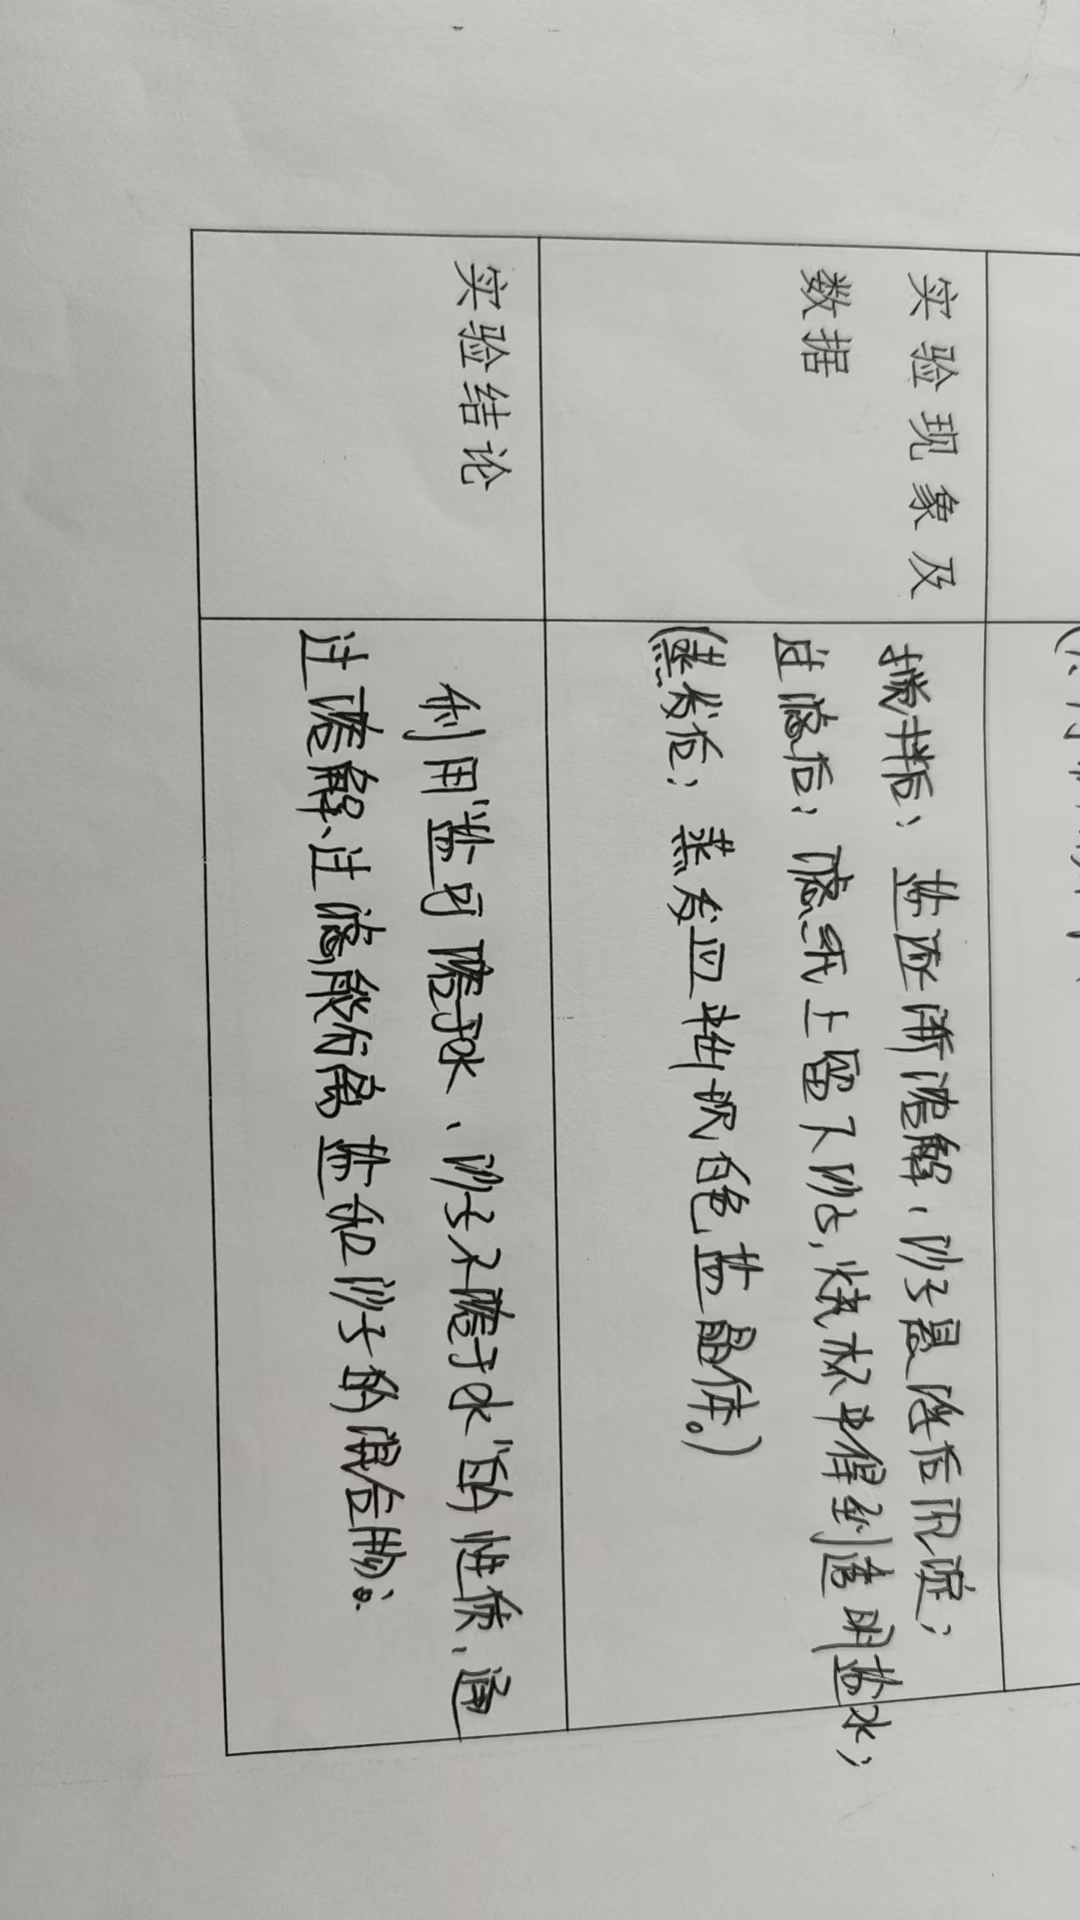 实验现象及
数据
搅拌后：盐逐渐溶解，沙子悬浮后沉淀；
过滤后：滤纸上留下沙子，烧杯中得到透明盐水；
(蒸发后：蒸发皿中出现白色盐晶体。)
实验结论
利用“盐可溶于水、沙子不溶于水”的性质，通
过溶解、过滤，能分离盐和沙子的混合物。